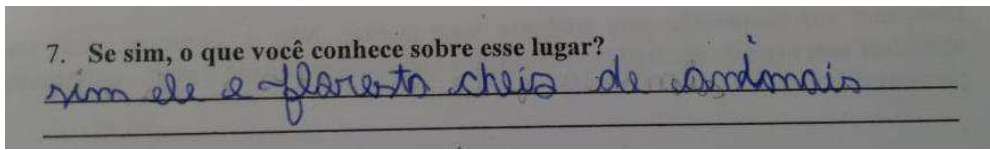 7. Se sim, o que você conhece sobre esse lugar?
sim ele e floresta cheia de andimais